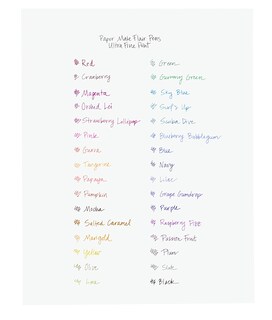 Paper Mate Flair Pens
Ultra Fine Point
Red
Cranberry
Magenta
Orchid Lei
Strawberry Lollipop
Pink
Guava
Tangerine
Papaya
Pumpkin
Mocha
Salted Caramel
Marigold
Yellow
Olive
Lime
Green
Gummy Green
Sky Blue
Surf's Up
Scuba Dive
Blueberry Bubblegum
Blue
Navy
Lilac
Grape Gumdrop
Purple
Raspberry Pizzazz
Passion Fruit
Plum
Slate
Black